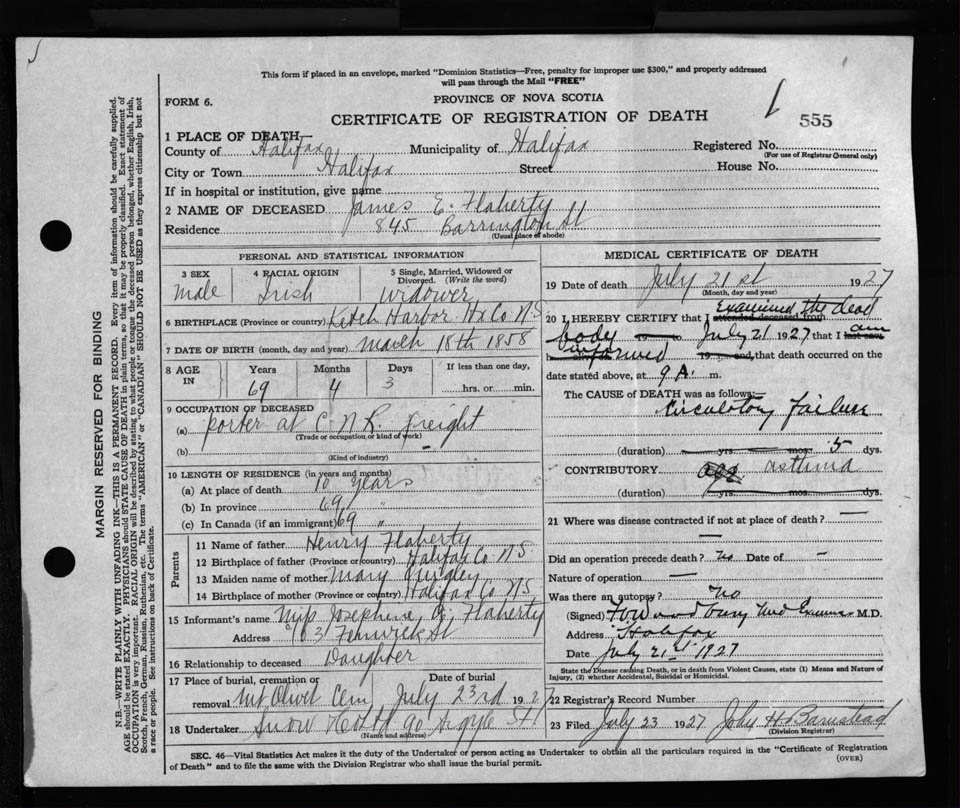 This form if placed in an envelope, marked "Dominion Statistics—Free, penalty for improper use $300," and properly addressed
will pass through the Mail "FREE"
FORM 6.
PROVINCE OF NOVA SCOTIA
CERTIFICATE OF REGISTRATION OF DEATH
555
1 PLACE OF DEATH—
County of Halifax Municipality of Halifax Registered No.
(For use of Registrar General only)
City or Town Halifax Street House No.
If in hospital or institution, give name
2 NAME OF DECEASED James E. Flaherty
Residence 845 Barrington St
(Usual place of abode)
PERSONAL AND STATISTICAL INFORMATION
3 SEX 4 RACIAL ORIGIN 5 Single, Married, Widowed or Divorced. (Write the word)
Male Irish Widower
6 BIRTHPLACE (Province or country) Ketch Harbor Hx Co N S
7 DATE OF BIRTH (month, day and year) March 18th 1858
8 AGE IN Years Months Days If less than one day,
69 4 3 hrs. or min.
9 OCCUPATION OF DECEASED
(a) porter at C.N.R. Freight
(Trade or occupation or kind of work)
(b)
(Kind of industry)
10 LENGTH OF RESIDENCE (in years and months)
(a) At place of death 10 years
(b) In province 69 "
(c) In Canada (if an immigrant) 69 "
Parents
11 Name of father Henry Flaherty
12 Birthplace of father (Province or country) Halifax Co N S
13 Maiden name of mother Mary Quigley
14 Birthplace of mother (Province or country) Halifax Co N S
15 Informant's name Miss Josephine Flaherty
Address Fenwick St
16 Relationship to deceased Daughter
17 Place of burial, cremation or removal Date of burial
Mt Olivet Cem July 23rd 1927
18 Undertaker Snow & Co Ltd 90 Argyle St
(Name and address)
MEDICAL CERTIFICATE OF DEATH
19 Date of death July 21st 1927
(Month, day and year)
20 I HEREBY CERTIFY that I attended deceased from Examined the dead
body 19 to July 21 1927 that I last saw am
informed 19 and, that death occurred on the
date stated above, at 9 A. m.
The CAUSE of DEATH was as follows:—
Circulatory failure
(duration) yrs. mos. 5 dys.
CONTRIBUTORY age asthma
(duration) yrs. mos. dys.
21 Where was disease contracted if not at place of death? —
—
Did an operation precede death? no Date of —
Nature of operation —
Was there an autopsy? No
(Signed) Med Examiner M.D.
Address Halifax
Date July 21st 1927
State the Disease causing Death, or in death from Violent Causes, state (1) Means and Nature of
Injury, (2) whether Accidental, Suicidal or Homicidal.
22 Registrar's Record Number
23 Filed July 23 1927 John H Barnstead
(Division Registrar)
SEC. 46—Vital Statistics Act makes it the duty of the Undertaker or person acting as Undertaker to obtain all the particulars required in the "Certificate of Registration
of Death" and to file the same with the Division Registrar who shall issue the burial permit.
(OVER)
MARGIN RESERVED FOR BINDING
N.B.—WRITE PLAINLY WITH UNFADING INK—THIS IS A PERMANENT RECORD. Every item of information should be carefully supplied.
AGE should be stated EXACTLY. PHYSICIANS should STATE CAUSE OF DEATH in plain terms, so that it may be properly classified. Exact statement of
OCCUPATION is very important. RACIAL ORIGIN will be described by stating to what people or tongue the deceased person belonged, whether English, Irish,
Scotch, French, German, Russian, Ruthenian, etc. The terms "AMERICAN" or "CANADIAN" SHOULD NOT BE USED as they express citizenship but not
a race or people. See instructions on back of Certificate.